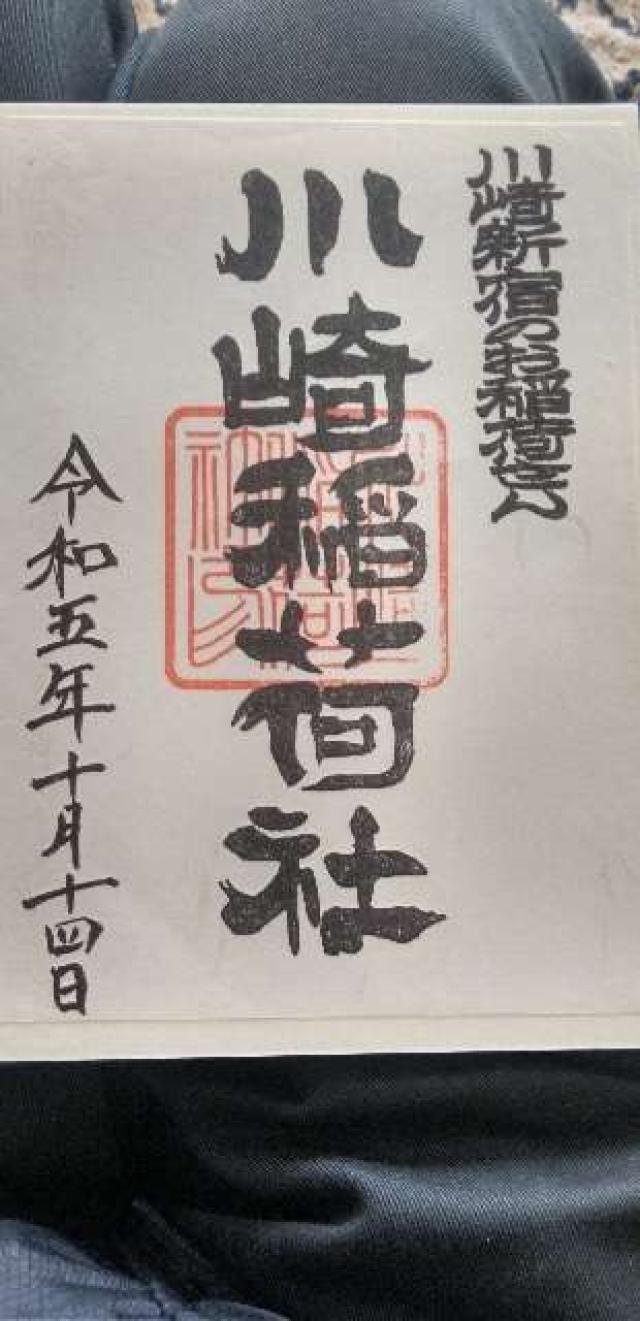 川崎新宿のお稲荷さん
川崎稲荷社
令和五年十月十四日